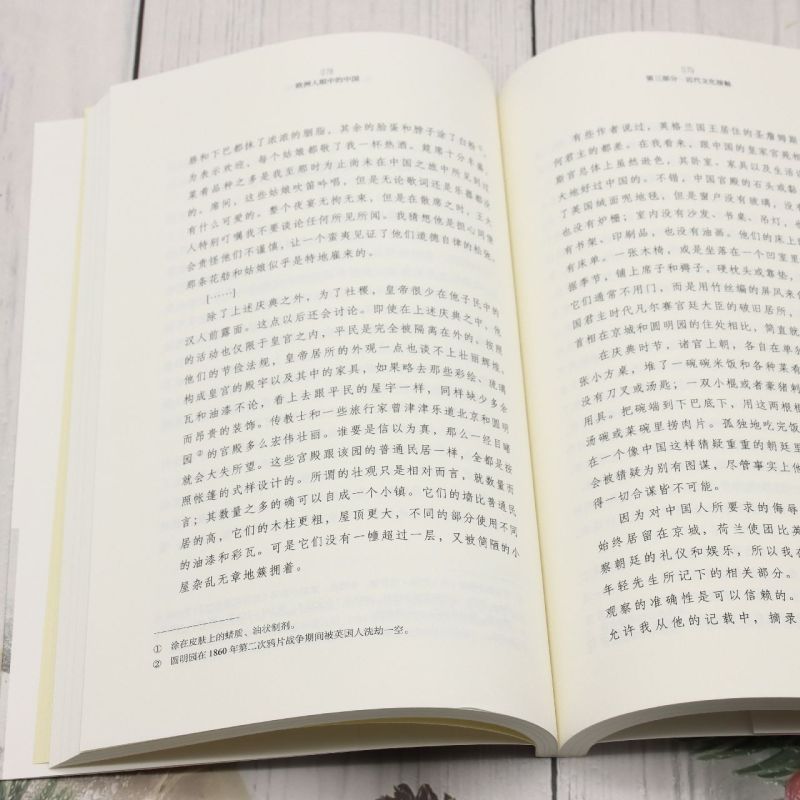 欧洲人眼中的中国
唇和下巴都抹了浓浓的胭脂，其余的脸蛋和脖子涂了白粉
为表示欢迎、每个姑娘都敬了我一杯热酒。筵席十分丰富，
菜肴品种之多是我至那时为止尚未在中国之旅中所见到过
的。席间，这些姑娘吹笛吟唱，但是无论歌词还是乐器都没
有什么可爱的。整个夜宴无拘无束，但是在散席之时，王大
人特别叮嘱我不要谈论任何所见所闻。我猜想他是担心同僚
会责怪他们不谨慎，让一个蛮夷见证了他们道德自律的松弛。
那条花舫和姑娘似乎是特地雇来的。
[……]
除了上述庆典之外，为了社稷，皇帝很少在他子民中的
汉人前露面。这点以后还会讨论。即使在上述庆典之中，他
的活动也仅限于皇宫之内，平民是完全被隔离在外的。按照
他们的节俭法规，皇帝居所的外观一点也谈不上壮丽辉煌。
构成皇宫的殿宇以及其中的家具，如果略去那些彩绘、琉璃
瓦和油漆不论，看上去跟平民的屋宇一样，同样缺少多余
而昂贵的装饰。传教士和一些旅行家曾津津乐道北京和圆明
园②的宫殿多么宏伟壮丽。谁要是信以为真，那么一经目睹
就会大失所望。这些宫殿跟该园的普通民居一样，全都是按
照帐篷的式样设计的。所谓的壮观只是相对而言，就数量而
言；其数量之多的确可以自成一个小镇。它们的墙比普通民
居的高，它们的木柱更粗，屋顶更大，不同的部分使用不同
的油漆和彩瓦。可是它们没有一幢超过一层，又被简陋的小
屋杂乱无章地簇拥着。
① 涂在皮肤上的蜡质、油状制剂。
② 圆明园在1860年第二次鸦片战争期间被英国人洗劫一空。
第三部分 近代文化接触
有些作者说过，英格兰国王居住的圣詹姆斯
何君主的都差。在我看来，跟中国的皇家宫苑相
斯宫总体上虽然逊色，其卧室、家具以及生活设
大地好过中国的。不错，中国宫殿的石头或黏
了英国绒面呢地毯，但是窗户没有玻璃，没有
也没有炉栅；室内没有沙发、书桌、吊灯，也
有书架、印刷品，也没有油画。他们的床上既
有床单。一张木椅，或是坐落在一个凹室里
据季节，铺上席子和褥子，硬枕头或靠垫，
它们通常不用门，而是用竹丝编的屏风来作
国君主时代凡尔赛宫廷大臣的破旧居所，
首相在京城和圆明园的住处相比，简直就
在庆典时节，诸宫上朝，各自在单独
张小方桌，堆了一碗碗米饭和各种菜肴
没有刀叉或汤匙；一双小棍或者豪猪刺
用具。把碗端到下巴底下，用这两根棍
汤碗或菜碗里捞肉片。孤独地吃完饭
在一个像中国这样猜疑重重的朝廷里
会被猜疑为别有图谋，尽管事实上他
得一切合谋皆不可能。
因为对中国人所要求的侮辱
始终居留在京城，荷兰使团比英
察朝廷的礼仪和娱乐，所以我在
年轻先生所记下的相关部分。
观察的准确性是可以信赖的。
允许我从他的记载中，摘录